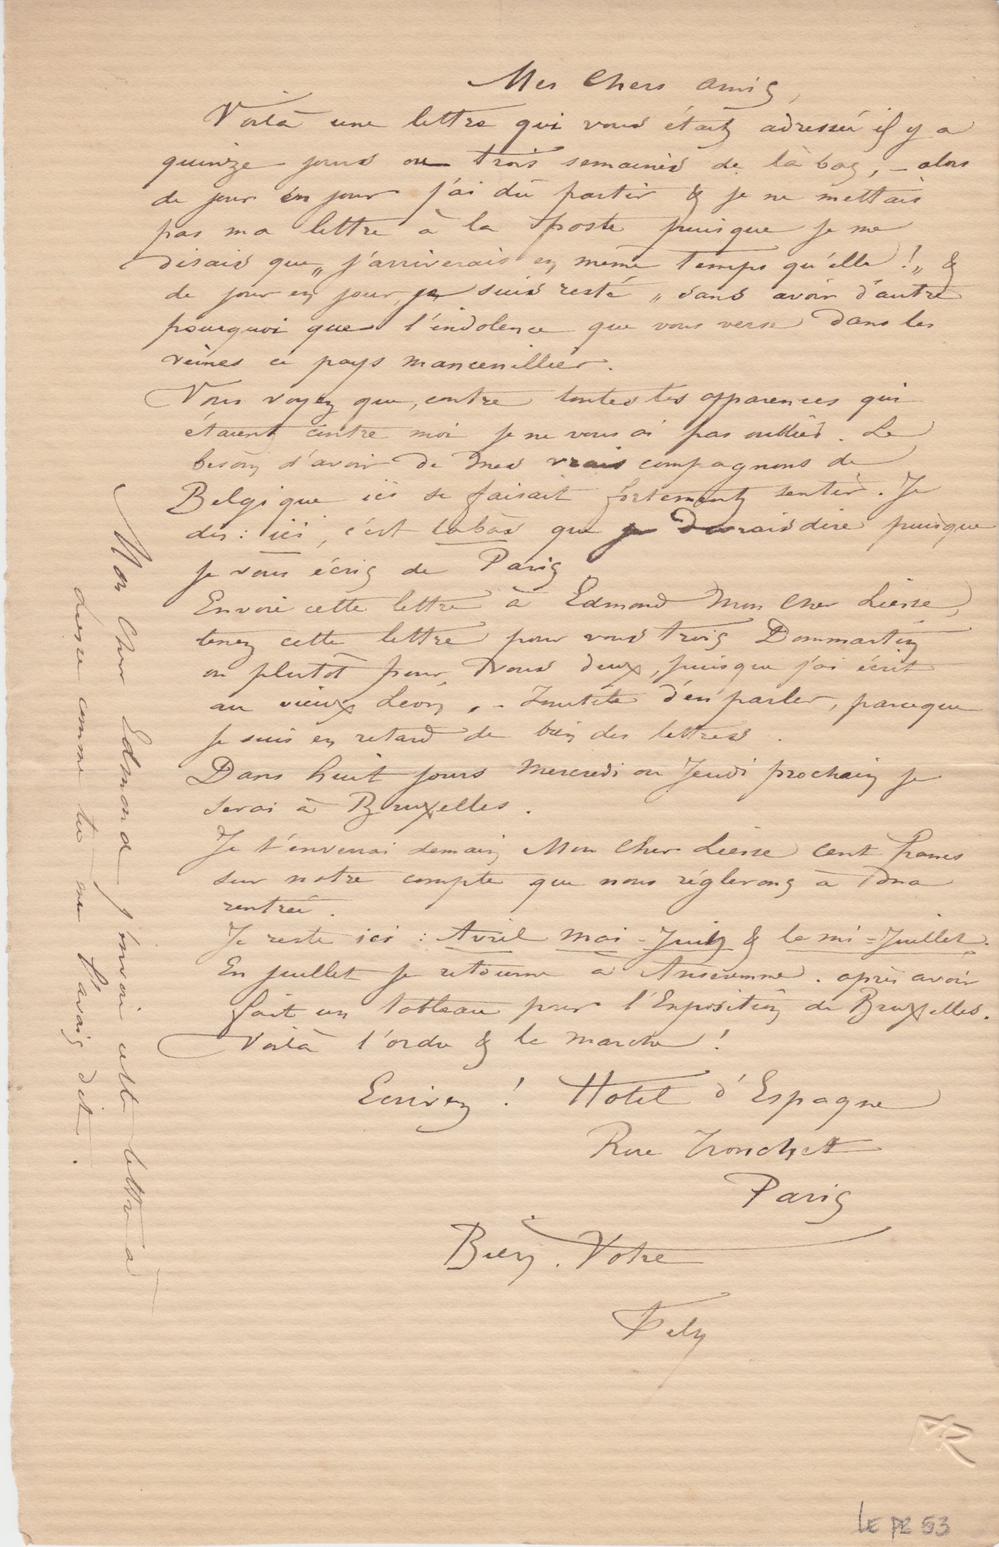 Mes Chers amis,
Voilà une lettre qui vous était adressée il y a
quinze jours ou trois semaines de là bas, – alors
de jour en jour j'ai dû partir & je ne mettais
pas ma lettre à la poste puisque je me
disais que „ j'arriverais en même temps qu'elle ! „ &
de jour en jour, je suis resté „ sans avoir d'autre
pourquoi que l'indolence que vous verse dans les
veines ce pays mancenillier.
Vous voyez que, contre toutes les apparences qui
étaient contre moi je ne vous ai pas oubliés. Le
besoin d'avoir de mes vrais compagnons de
Belgique ici se faisait fortement sentir. Je
dis : ici, c'est labàs que je devrais dire puisque
je vous écris de Paris
Envoie cette lettre à Edmond Mon Cher Liesse,
tenez cette lettre pour vous trois Dommartin
ou plutôt pour vous deux, puisque j'ai écrit
au vieux Léon, – Inutile d'en parler, parceque
je suis en retard de bien des lettres.
Dans huit jours Mercredi ou Jeudi prochain je
serai à Bruxelles.
Je t'enverrai demain Mon Cher Liesse cent francs
sur notre compte que nous réglerons à ma
rentrée.
Je reste ici : Avril mai – Juin & la mi = Juillet.
En juillet je retourne à Anseremme. après avoir
fait un tableau pour l'Exposition de Bruxelles.
Voilà l'ordre & la marche !
Ecrivez ! Hotel d'Espagne
Rue Tronchet
Paris
Bien. Votre
Fély
Mon Cher Edmond j'envoie cette lettre à
Liesse comme tu me l'avais dit.
LE PR 53